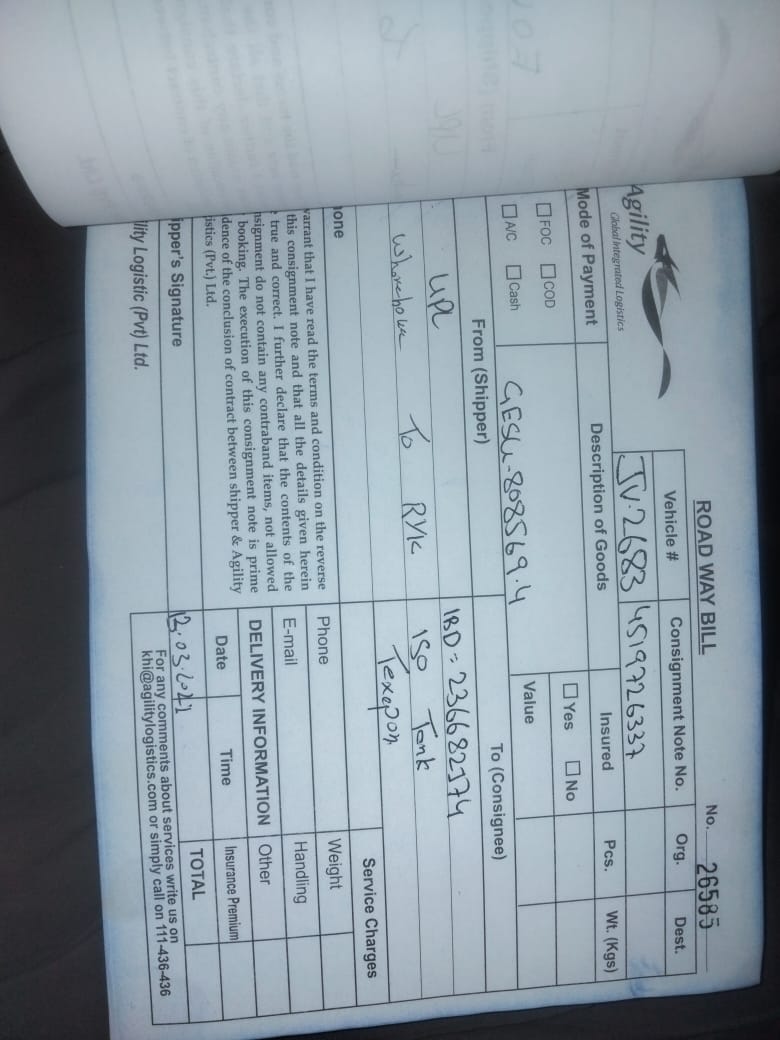 ROAD WAY BILL
No. 26585
Agility
Global Integrated Logistics
Vehicle # Consignment Note No. Org. Dest.
JV-2683 4519726337
Mode of Payment Description of Goods Insured Pcs. Wt. (Kgs)
FOC COD
Yes No
A/C Cash
GESU-808569.4
Value
From (Shipper) To (Consignee)
UPL
IBD = 236682374
To RYK
ISO Tank
Texapon
one
Service Charges
warrant that I have read the terms and condition on the reverse
this consignment note and that all the details given herein
true and correct. I further declare that the contents of the
nsignment do not contain any contraband items, not allowed
booking. The execution of this consignment note is prime
dence of the conclusion of contract between shipper & Agility
istics (Pvt.) Ltd.
Phone
Weight
E-mail
Handling
DELIVERY INFORMATION
Other
Date Time
Insurance Premium
ipper's Signature
TOTAL
.03.2021
lity Logistic (Pvt) Ltd.
For any comments about services write us on
khi@agilitylogistics.com or simply call on 111-436-436